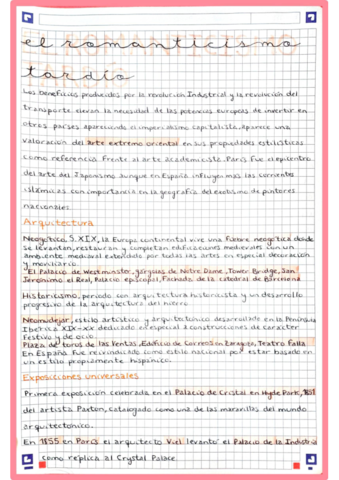 EL ROMANTICISMO
TARDÍO
el romanticismo
tardío
Los beneficios producidos por la revolución Industrial y la revolución del
transporte elevan la necesidad de las potencias europeas de invertir en
otros países apareciendo el imperialismo capitalista. Aparece una
valoración del arte extremo oriental en sus propiedades estilísticas
como referencia frente al arte academicista. París fue el epicentro
del arte del Japanismo aunque en España influyen mas las corrientes
islámicas con importancia en la geografía del exotismo de pintores
nacionales.
Arquitectura
Neogótico, S. XIX, la Europa continental vive una fiebre neogótica donde
se levantan, restauran y completan edificaciones medievales con un
ambiente medieval extendido por todas las artes en especial decoración
y moviliario.
El Palacio de Westminster, gárgolas de Notre Dame, Tower Bridge, San
Jerónimo el Real, Palacio episcopal, Fachada de la catedral de Barcelona
Historicismo, periodo con arquitectura historicista y un desarrollo
progresivo de la arquitectura del hierro.
Neomudejar, estilo artístico y arquitectónico desarrollado en la Península
Ibérica XIX-XX dedicado en especial a construcciones de carácter
festivo y de ocio.
Plaza de toros de las Ventas, Edificio de Correos en Zaragoza, Teatro Falla
En España fue reivindicado como estilo nacional por estar basado en
un estilo propiamente hispánico.
Exposiciones universales
Primera exposición celebrada en el Palacio de Cristal en Hyde Park, 1851
del artista Paxton, catalogado como una de las maravillas del mundo
arquitectónico.
En 1855 en París el arquitecto Viel levantó el Palacio de la Industria
como réplica al Crystal Palace.